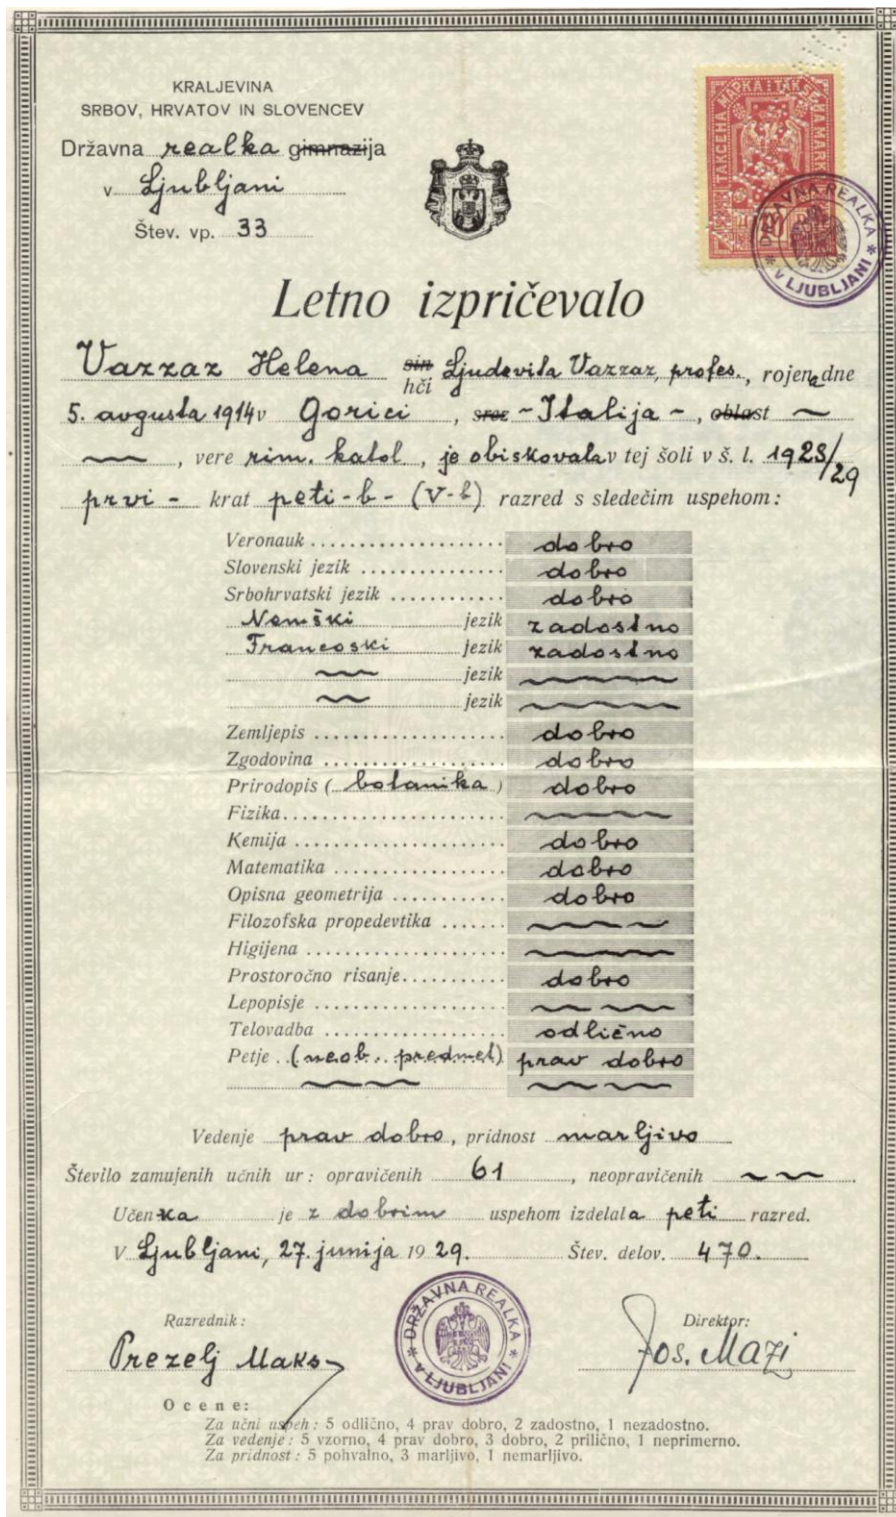 KRALJEVINA
SRBOV, HRVATOV IN SLOVENCEV
Državna realka gimnazija
v Ljubljani
Štev. vp. 33
TAKSENA MARKA
ТАКСЕНА МАРКА
DRŽAVNA REALKA
* V LJUBLJANI *
Letno izpričevalo
Vazzaz Helena sin hči Ljudevita Vazzaz, profes., rojena dne
5. avgusta 1914 v Gorici, srez - Italija -, oblast ~
~, vere rim. katol., je obiskovala v tej šoli v š. l. 1928/29
prvi - krat peti - b - (V-b) razred s sledečim uspehom:
Veronauk .................... dobro
Slovenski jezik ............... dobro
Srbohrvatski jezik ............ dobro
Nemški jezik zadostno
Francoski jezik zadostno
~ jezik ~
~ jezik ~
Zemljepis .................... dobro
Zgodovina ................... dobro
Prirodopis ( botanika ) dobro
Fizika....................... ~
Kemija ...................... dobro
Matematika .................. dobro
Opisna geometrija ............ dobro
Filozofska propedevtika ....... ~
Higijena ..................... ~
Prostoročno risanje........... dobro
Lepopisje .................... ~
Telovadba ................... odlično
Petje (neob. predmet) prav dobro
~ ~
Vedenje prav dobro, pridnost marljivo
Število zamujenih učnih ur: opravičenih 61, neopravičenih ~.
Učenka je z dobrim uspehom izdelala peti razred.
V Ljubljani, 27. junija 1929. Štev. delov. 470.
Razrednik: Direktor:
DRŽAVNA REALKA
* V LJUBLJANI *
Prezelj Maks Jos. Mazi
Ocene:
Za učni uspeh: 5 odlično, 4 prav dobro, 2 zadostno, 1 nezadostno.
Za vedenje: 5 vzorno, 4 prav dobro, 3 dobro, 2 prilično, 1 neprimerno.
Za pridnost: 5 pohvalno, 3 marljivo, 1 nemarljivo.